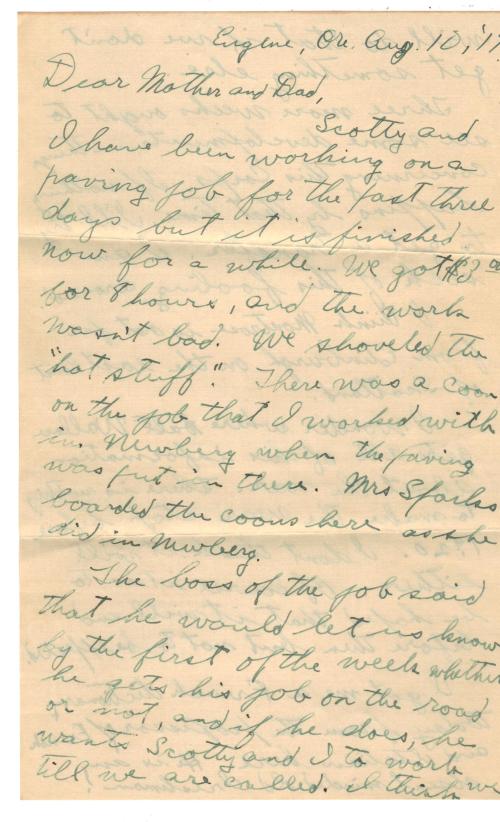 Eugene, Ore. Aug. 10, '17
Dear Mother and Dad,
Scotty and
I have been working on a
paving job for the past three
days but it is finished
now for a while. We got $3 00
for 8 hours, and the work
wasn't bad. We shoveled the
"hot stuff". There was a coon
on the job that I worked with
in Newberg when the paving
was put in there. Mrs Sparks
boarded the coons here as she
did in Newberg.
The boss of the job said
that he would let us know
by the first of the week whether
he gets his job on the road
or not, and if he does, he
wants Scotty and I to work
till we are called. I think we